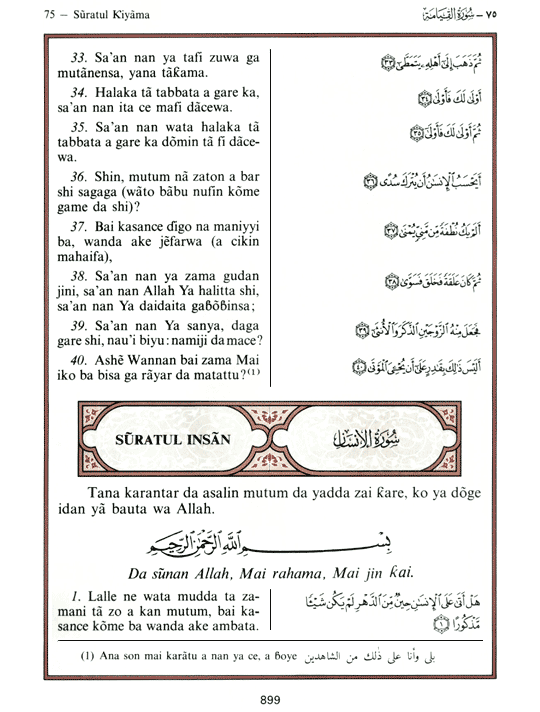 75 – Sũratul Ƙiyãma
سُورَةُ القِيَامَة – ٧٥
33. Sa'an nan ya tafi zuwa ga
mutãnensa, yana tãƙama.
34. Halaka tã tabbata a gare ka,
sa'an nan ita ce mafi dãcewa.
35. Sa'an nan wata halaka tã
tabbata a gare ka dõmin tã fi dãce-
wa.
36. Shin, mutum nã zaton a bar
shi sagaga (wãto bãbu nufin kõme
game da shi)?
37. Bai kasance ɗigo na maniyyi
ba, wanda ake jẽfarwa (a cikin
mahaifa),
38. Sa'an nan ya zama gudan
jini, sa'an nan Allah Ya halitta shi,
sa'an nan Ya daidaita gaɓõɓinsa;
39. Sa'an nan Ya sanya, daga
gare shi, nau'i biyu: namiji da mace?
40. Ashẽ Wannan bai zama Mai
iko ba bisa ga rãyar da matattu?(1)
ثُمَّ ذَهَبَ إِلَىٰٓ أَهْلِهِۦ يَتَمَطَّىٰٓ ﴿٣٣﴾
أَوْلَىٰ لَكَ فَأَوْلَىٰ ﴿٣٤﴾
ثُمَّ أَوْلَىٰ لَكَ فَأَوْلَىٰٓ ﴿٣٥﴾
أَيَحْسَبُ ٱلْإِنسَٰنُ أَن يُتْرَكَ سُدًى ﴿٣٦﴾
أَلَمْ يَكُ نُطْفَةً مِّن مَّنِىٍّ يُمْنَىٰ ﴿٣٧﴾
ثُمَّ كَانَ عَلَقَةً فَخَلَقَ فَسَوَّىٰ ﴿٣٨﴾
فَجَعَلَ مِنْهُ ٱلزَّوْجَيْنِ ٱلذَّكَرَ وَٱلْأُنثَىٰٓ ﴿٣٩﴾
أَلَيْسَ ذَٰلِكَ بِقَٰدِرٍ عَلَىٰٓ أَن يُحْـِۧىَ ٱلْمَوْتَىٰ ﴿٤٠﴾
SŨRATUL INSÃN
سُورَةُ الإِنسَانِ
Tana karantar da asalin mutum da yadda zai ƙare, ko ya dõge
idan yã bauta wa Allah.
بِسْمِ ٱللَّهِ ٱلرَّحْمَٰنِ ٱلرَّحِيمِ
Da sũnan Allah, Mai rahama, Mai jin ƙai.
1. Lalle ne wata mudda ta za-
mani tã zo a kan mutum, bai ka-
sance kõme ba wanda ake ambata.
هَلْ أَتَىٰ عَلَى ٱلْإِنسَٰنِ حِينٌ مِّنَ ٱلدَّهْرِ لَمْ يَكُن شَيْـًٔا
مَّذْكُورًا ﴿١﴾
(1) Ana son mai karãtu a nan ya ce, a ɓoye بلى وأنا على ذلك من الشاهدين
899